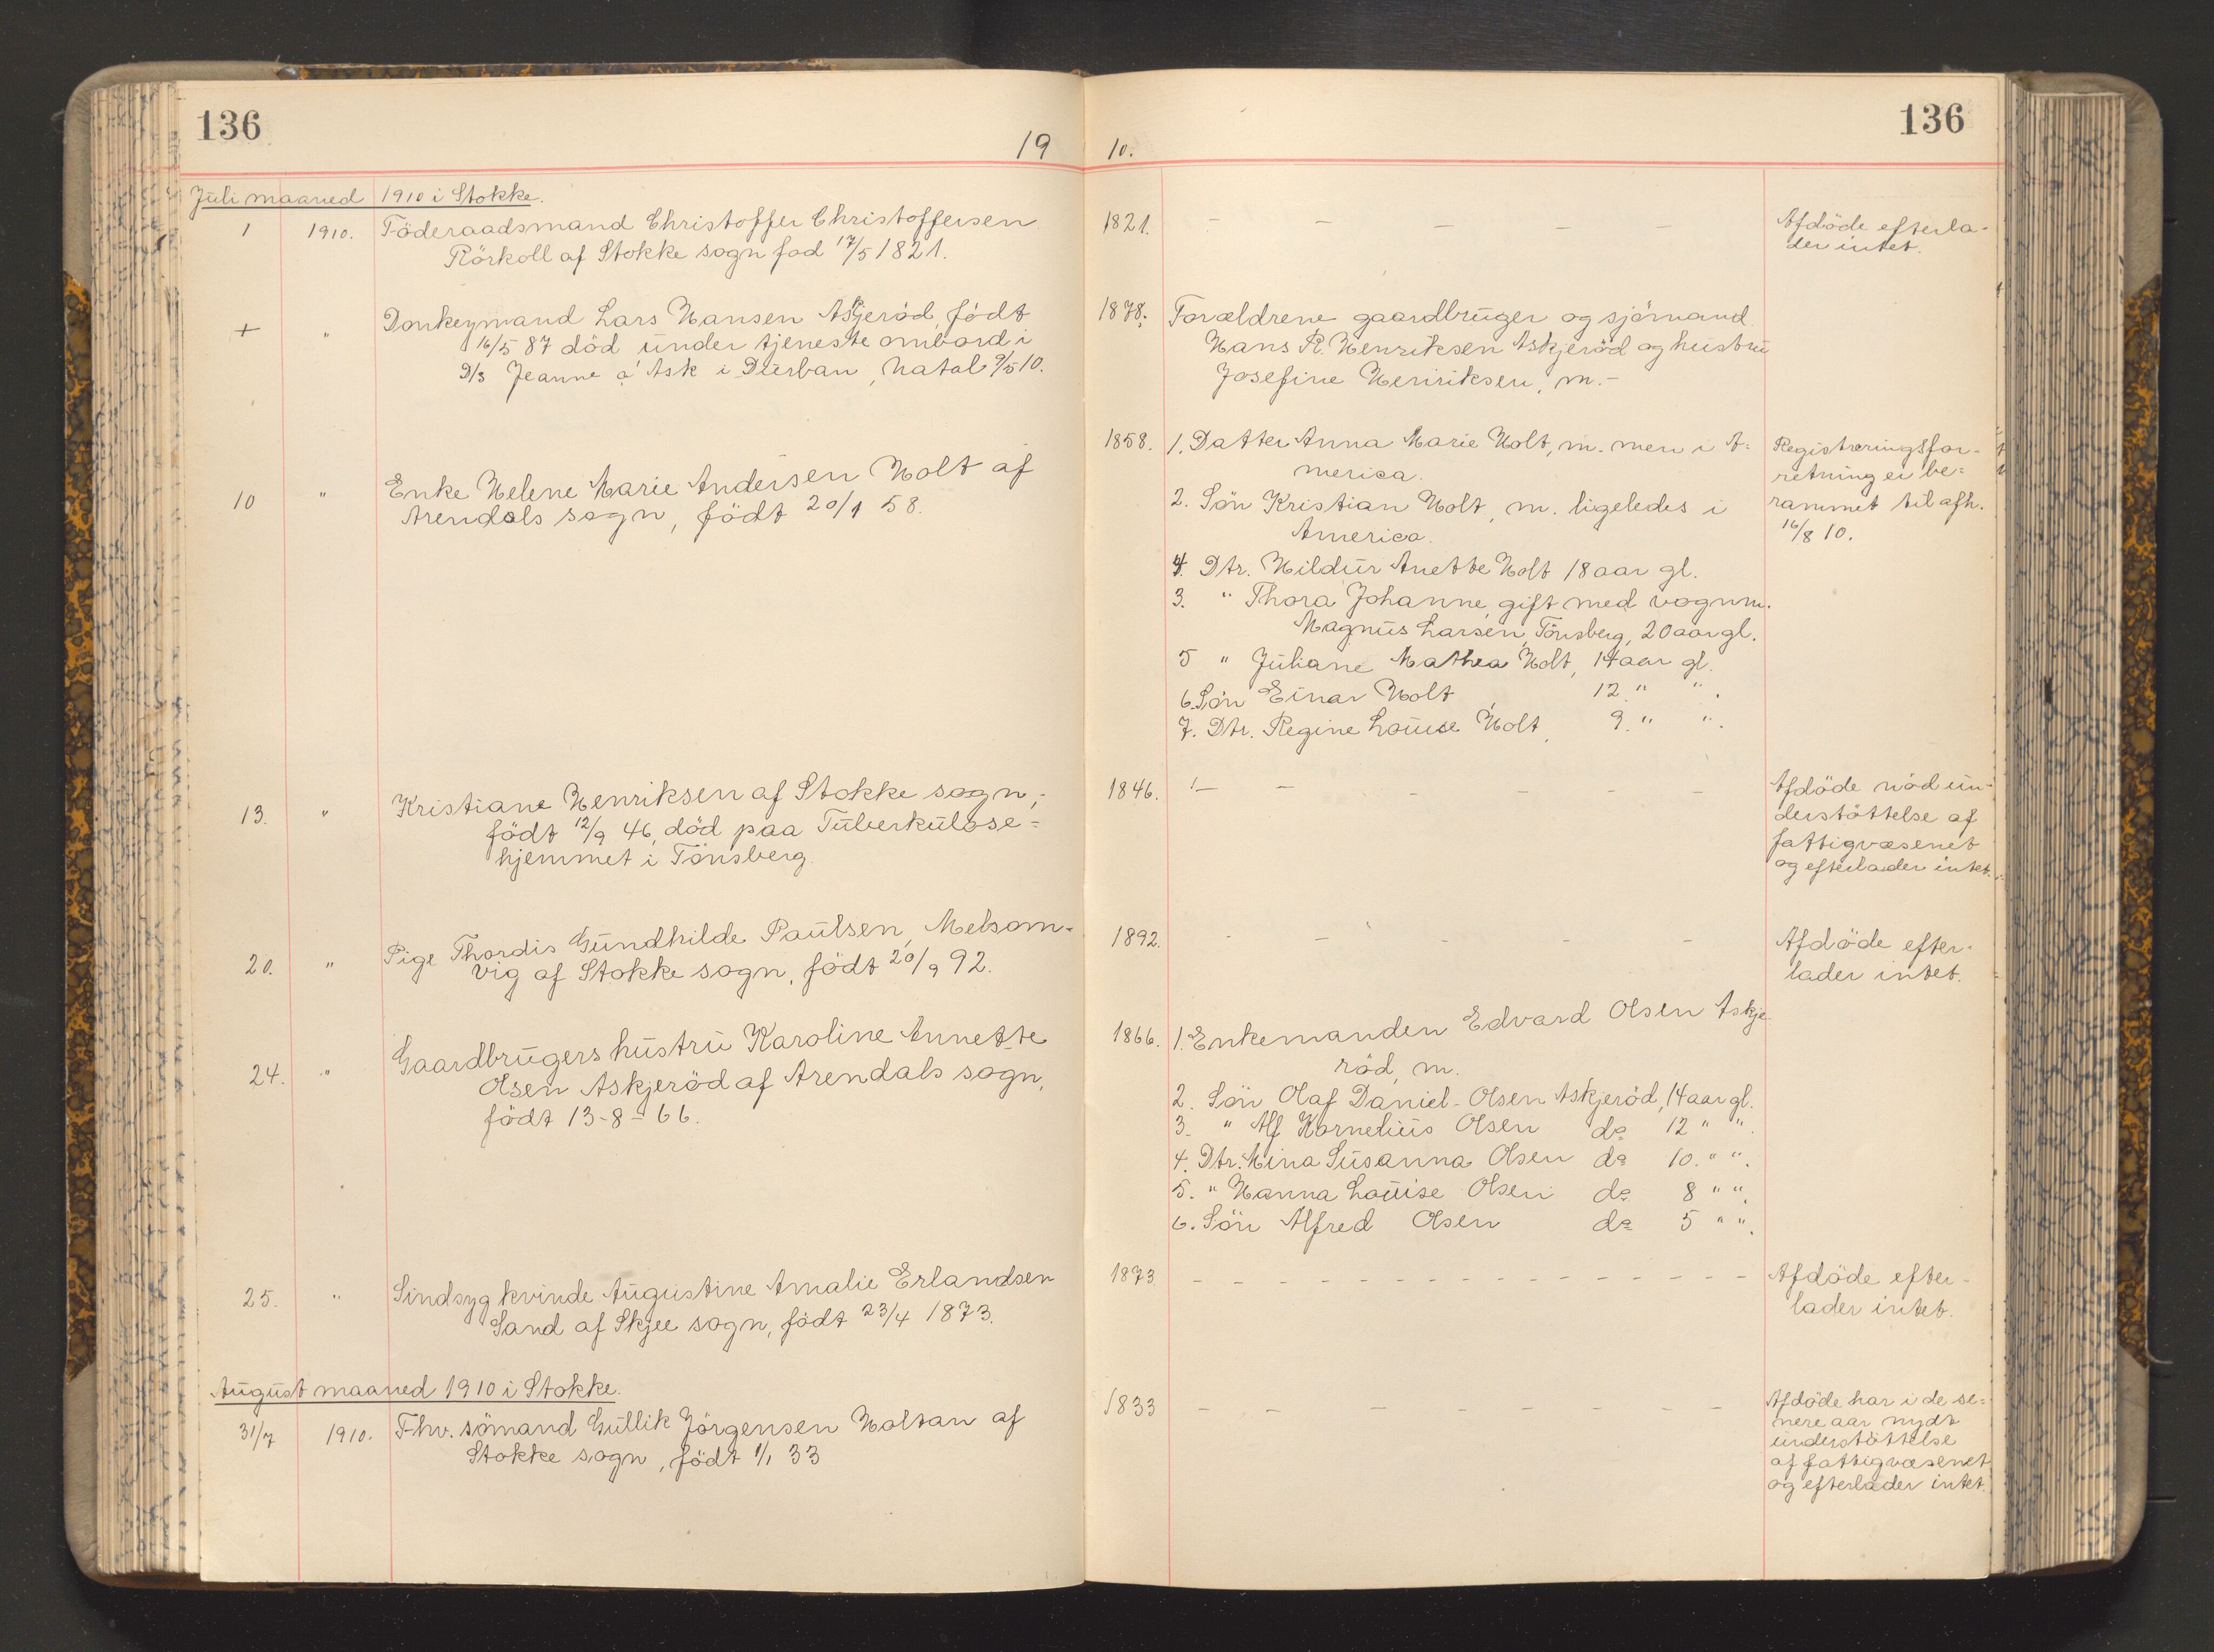 136
136
19 10.
Juli maaned 1910 i Stokke.
1 1910. Föderaadsmand Christoffer Christoffersen
Rörkoll af Stokke sogn fød 17/5 1821.
1821. - - - - -
Afdöde efterla-
der intet.
+ " Donkeymand Lars Hansen Askjeröd, födt
16/5 87 död under tjeneste ombord i
D/s Jeanne a' Ask i Durban, Natal 9/5 10.
1878. Forældrene gaardbruger og sjömand
Hans R. Henriksen Askjeröd og hustru
Josefine Henriksen, m.-
10 " Enke Helene Marie Andersen Holt af
Arendals sogn, födt 20/1 58.
1858. 1. Datter Anna Marie Holt, m. men i A=
merica.
2. Sön Kristian Holt, m. ligeledes i
America.
4. Dtr. Hildur Anette Holt 18 aar gl.
3. " Thora Johanne, gift med vognm.
Magnus Larsen, Tönsberg, 20 aar gl.
5 " Juliane Mathea Holt, 14 aar gl.
6. Sön Einar Holt 12 " ".
7. Dtr. Regine Louise Holt, 9. " ".
Registreringsfor-
retning ei be=
rammet til afh.
16/8 10.
13. " Kristiane Henriksen af Stokke sogn,
födt 12/9 46, död paa Tuberkulose=
hjemmet i Tönsberg.
1846. - - - - - -
Afdöde nöd un-
derstöttelse af
fattigvæsenet
og efterlader intet.
20. " Pige Thordis Gundhilde Paulsen, Melsom-
vig af Stokke sogn, födt 20/9 92.
1892. - - - - -
Afdöde efter-
lader intet.
24. " Gaardbrugers hustru Karoline Annette
Olsen Askjeröd af Arendals sogn,
födt 13-8-66.
1866. 1. Enkemanden Edvard Olsen Askje-
röd, m.
2. Sön Olaf Daniel Olsen Askjeröd, 14 aar gl.
3. " Alf Kornelius Olsen do 12 " ".
4. Dtr. Mina Susanna Olsen do 10. " ".
5. " Hanna Louise Olsen do 8 " ".
6. Sön Alfred Olsen do 5 " ".
25. " Sindsyg kvinde Augustine Amalie Erlandsen
Sand af Skjee sogn, födt 23/4 1873.
1873 - - - - - - - - - - - - - - - -
Afdöde efter-
lader intet.
August maaned 1910 i Stokke.
31/7 1910. Fhv. sömand Gullik Jörgensen Holtan af
Stokke sogn, födt 1/1 33
1833 - - - - - - - -
Afdöde har i de se=
nere aar nydt
understöttelse
af fattigvæsenet
og efterlader intet.